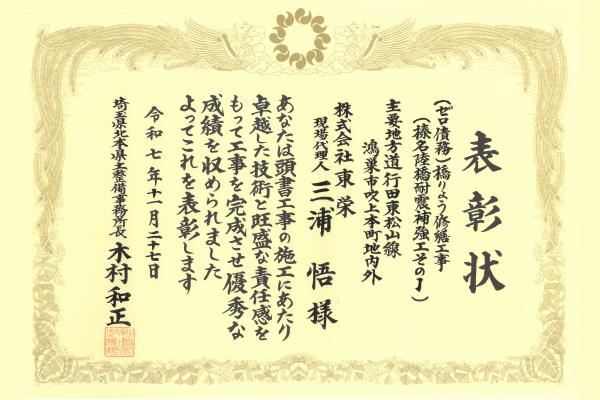 表彰状
（ゼロ債務）橋りょう修繕工事
（榛名陸橋耐震補強工その1）
主要地方道行田東松山線
鴻巣市吹上本町地内外
株式会社東栄
現場代理人 三浦悟様
あなたは頭書工事の施工にあたり
卓越した技術と旺盛な責任感を
もって工事を完成させ優秀な
成績を収められました
よってこれを表彰します
令和七年十一月二十七日
埼玉県北本県土整備事務所長 木村和正